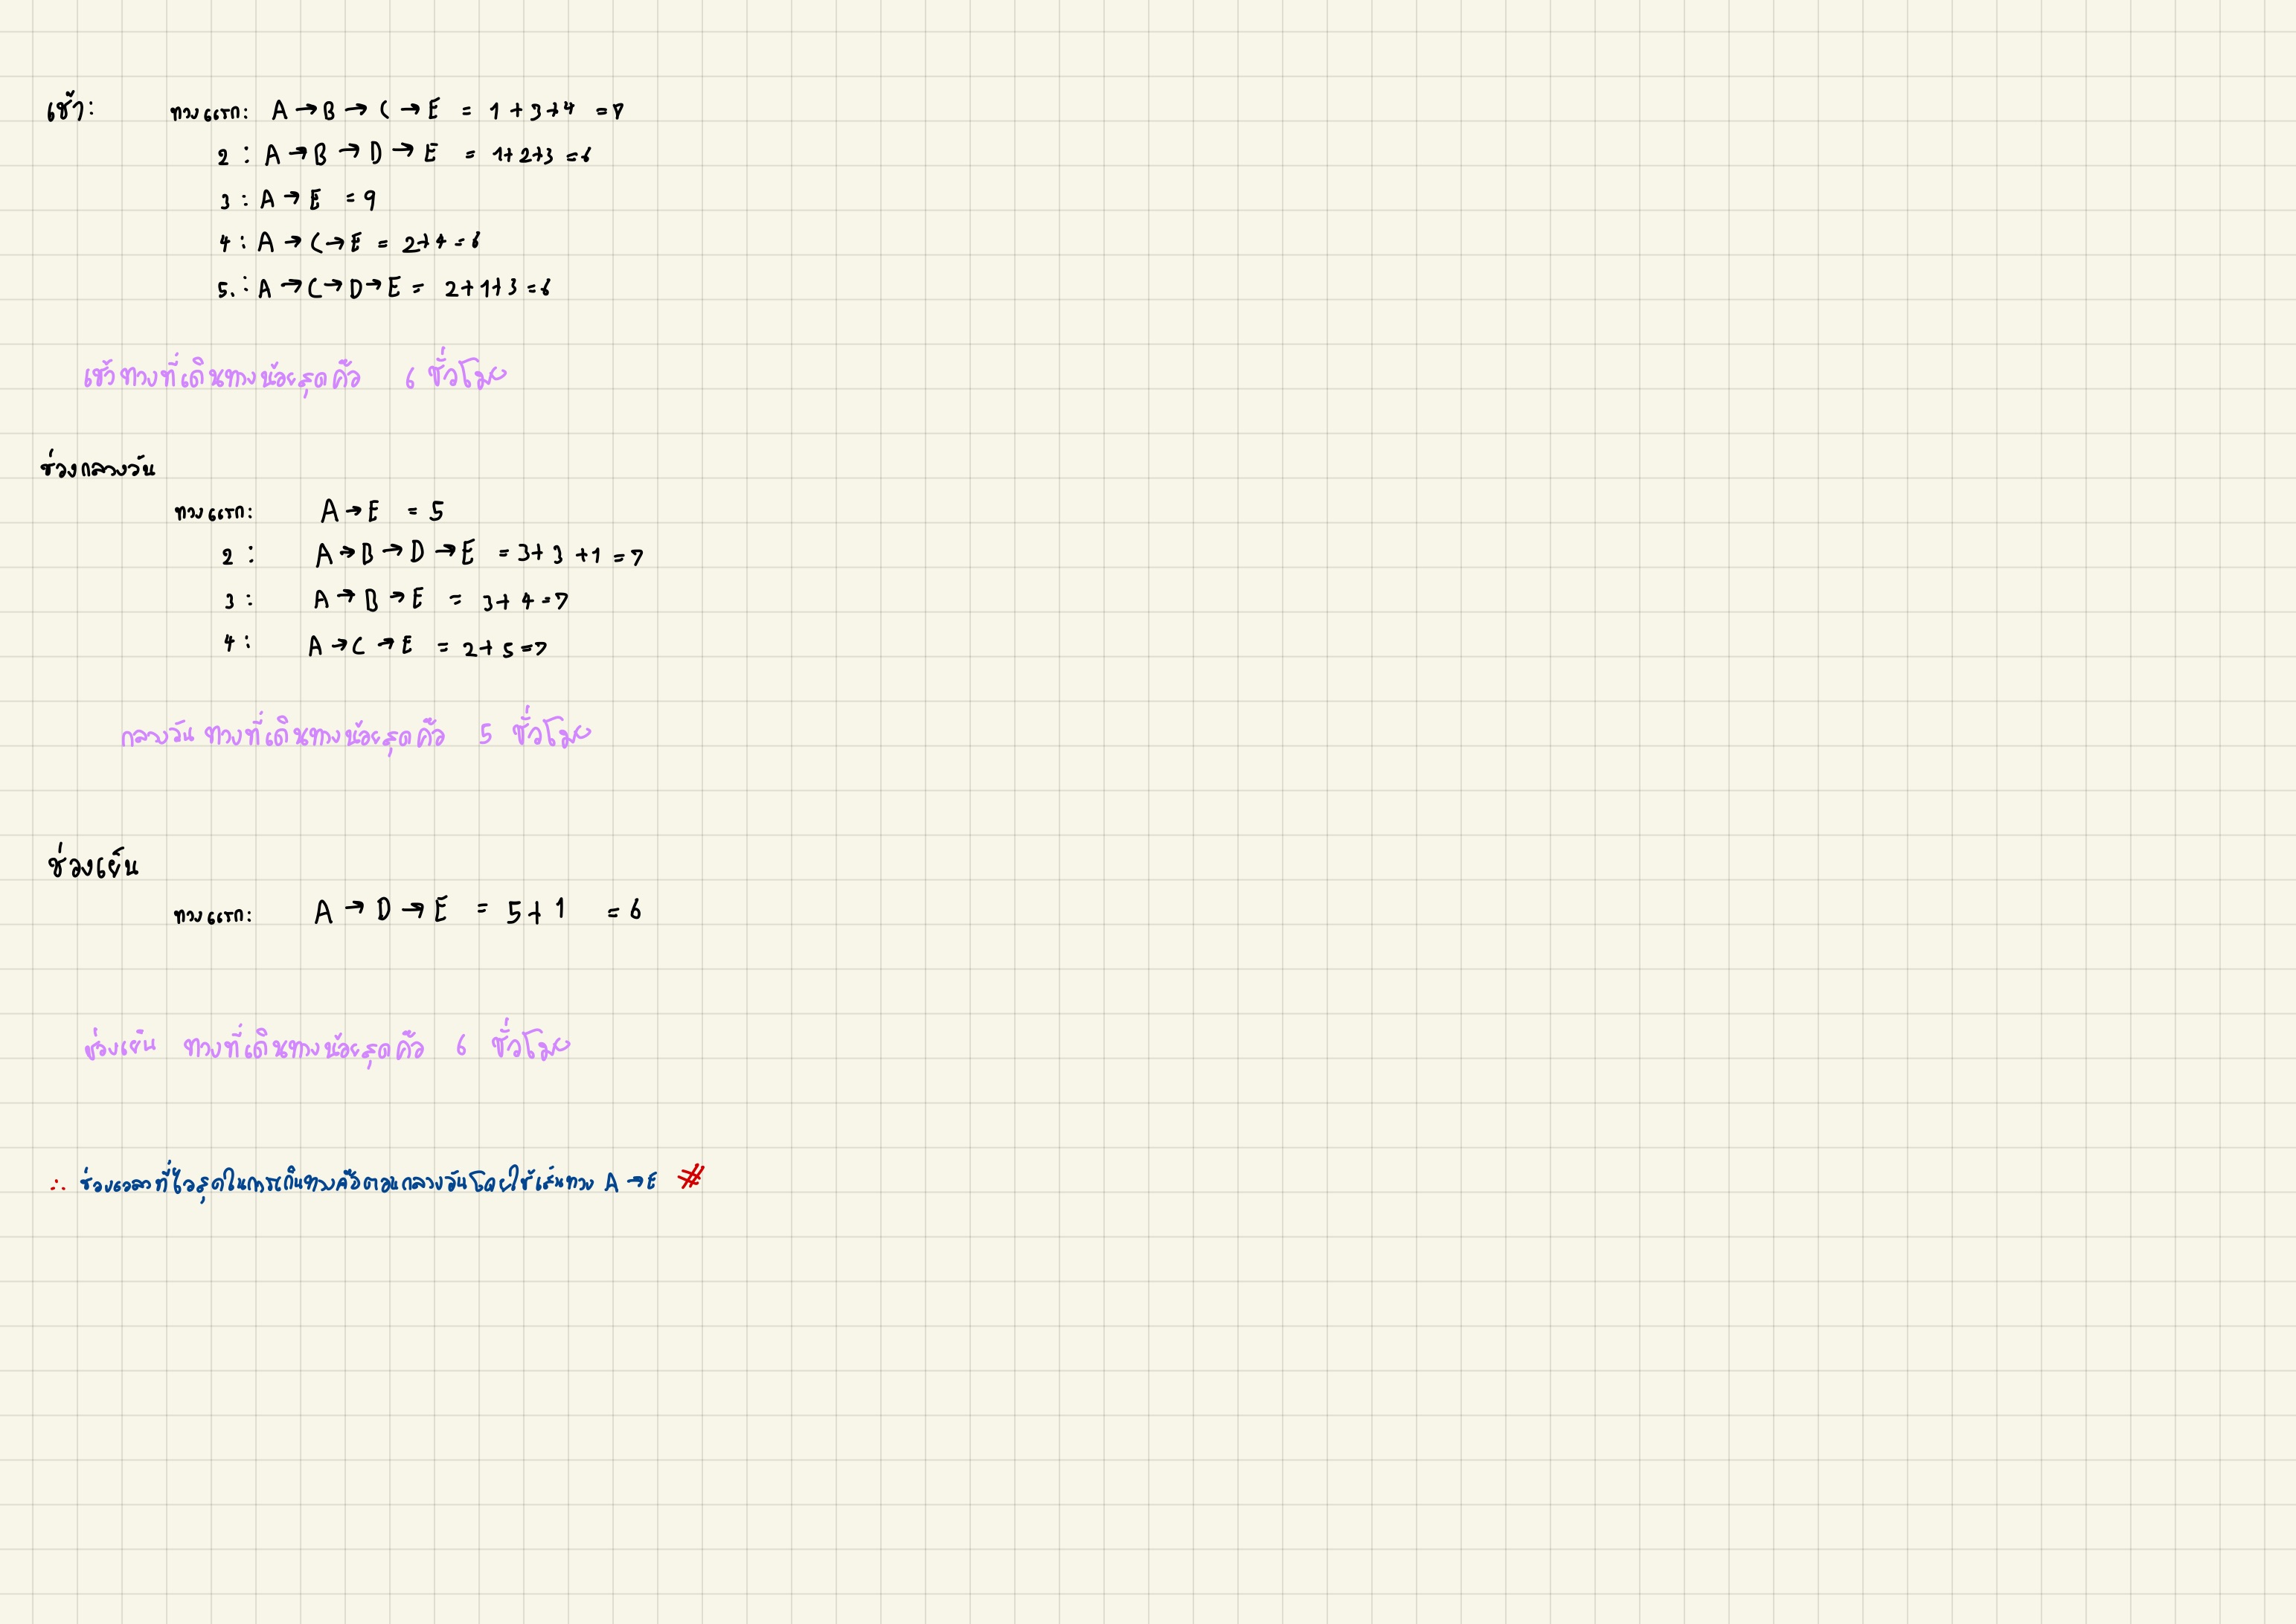 เช้า: ทางแรก: A → B → C → E = 1 + 3 + 4 = 7
2 : A → B → D → E = 1+2+3 = 6
3 : A → E = 9
4 : A → C → E = 2+4 = 6
5. : A → C → D → E = 2+1+3 = 6
เช้า ทางที่เดินทางน้อยสุดคือ 6 ชั่วโมง
ช่วงกลางวัน
ทางแรก: A → E = 5
2 : A → B → D → E = 3+3+1 = 7
3 : A → B → E = 3+4 = 7
4 : A → C → E = 2+5 = 7
กลางวัน ทางที่เดินทางน้อยสุดคือ 5 ชั่วโมง
ช่วงเย็น
ทางแรก: A → D → E = 5+1 = 6
ช่วงเย็น ทางที่เดินทางน้อยสุดคือ 6 ชั่วโมง
∴ ช่วงเวลาที่ไวสุดในการเดินทางคือตอนกลางวันโดยใช้เส้นทาง A → E #